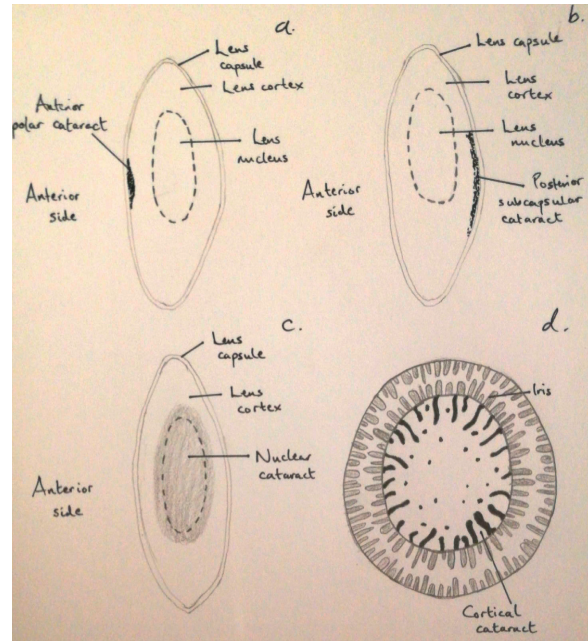 a.
Lens
capsule
Lens cortex
Anterior
polar cataract
Lens
nucleus
Anterior
side
b.
Lens capsule
Lens
cortex
Lens
nucleus
Anterior
side
Posterior
subcapsular
cataract
c.
Lens
capsule
Lens
cortex
Nuclear
cataract
Anterior
side
d.
Iris
Cortical
cataract